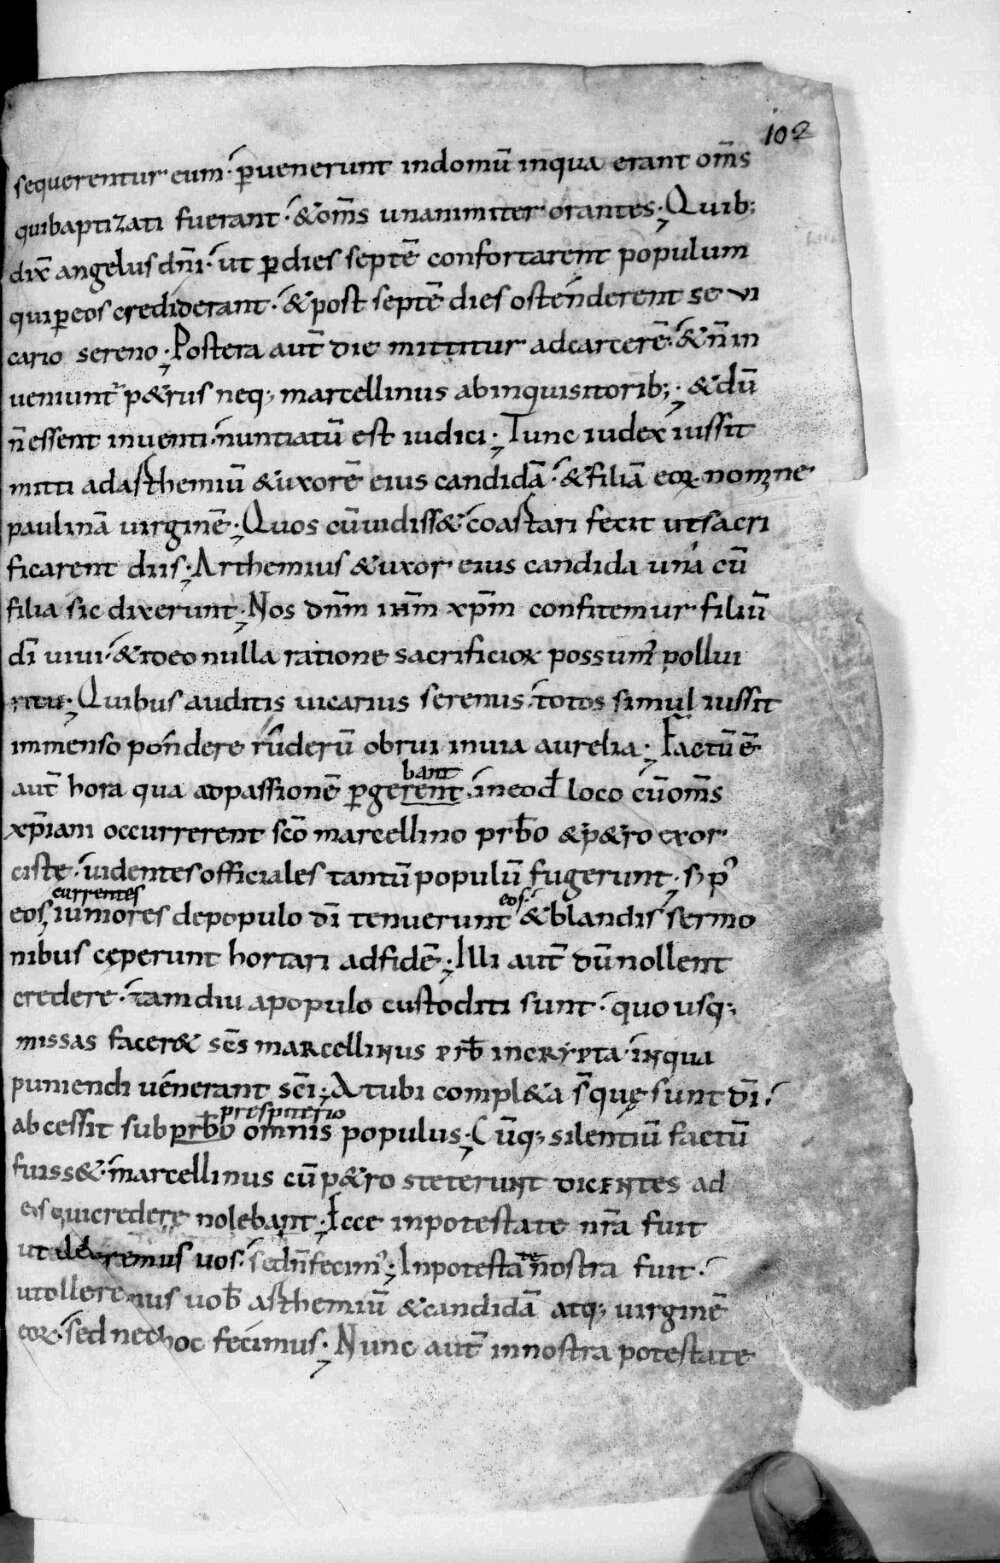 102
sequerentur eum · ꝑvenerunt indomū inqua erant om̄s
quibaptizati fuerant · &om̄s unanimiter orantes · Quib;
dix̄ angelus dn̄i · ut ꝑdies septē confortarent populum
quiꝑeos crediderant · &post septē dies ostenderent se vi
cario sereno · Postera aut̄ die mittitur adcarcerē · &n̄ in
veniunt᷒ p&rus neq; martellinus abinquisitorib; · &dū
n̄essent inventi · nuntiatū est iudici · Tunc iudex iussit
mitti adasthemiū &uxorē eius candidā · &filiā eoꝝ nomine
paulinā virginē · Quos cūvidiss& coastari fecit utsacri
ficarent diis · Arthemius &uxor eius candida unā cū
filia sic dixerunt · Nos dn̄m ih̄m xp̄m confitemur filiū
dī vivi · &ideo nulla ratione sacrificioꝝ possum᷒ pollui
ritu · Quibus auditis vicarius serenus · totos simul iussit
immenso pondere ruderū obrui invia aurelia · Factū ē
aut̄ hora qua adpassionē ꝑgerent bant · ineod̄ loco cūom̄s
xp̄iani occurrerent sc̄o marcellino prb̄o &p&ro exor
ciste · videntes officiales tantū populū fugerunt · s; p᷒
currentes eos.
eos iuniores depopulo dī tenuerunt &blandis sermo
nibus cęperunt hortari adfidē · Illi aut̄ dūnollent
credere · tamdiu apopulo custoditi sunt · quo usq;
missas facer& sc̄s marcellinus prb̄ incrypta · inqua
puniendi venerant sc̄i · Atubi compl&a s̄ quę sunt dī ·
prespiterio
abcessit subprb̄o omnis populus · Cūq; silentiū factū
fuiss& · marcellinus cū p&ro steterunt dicentes ad
eis quicredere nolebant · Ecce inpotestate nr̄a fuit
ut remus vos · sedn̄fecim᷒ · Inpotestate nostra fuit ·
utolleremus vob̄ asthemiū &candidā atq; virginē
eoꝝ · sed nechoc fecimus · Nunc aut̄ innostra potestate